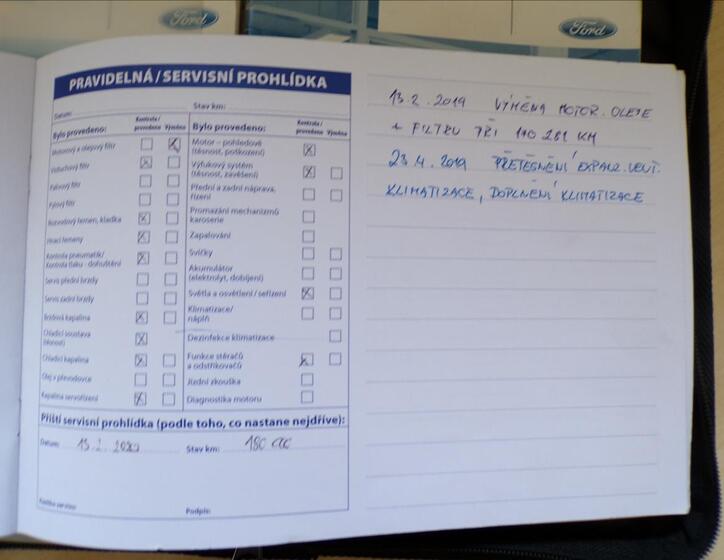 Ford
Ford
PRAVIDELNÁ / SERVISNÍ PROHLÍDKA
Datum:
Stav km:
Bylo provedeno:
Kontrola / provedeno
Výměna
Motorový a olejový filtr
Vzduchový filtr
Palivový filtr
Pylový filtr
Rozvodový řemen, kladka
Hnací řemeny
Kontrola pneumatik/
Kontrola tlaku - dohuštění
Servis přední brzdy
Servis zadní brzdy
Brzdová kapalina
Chladicí soustava
(těsnost)
Chladicí kapalina
Olej v převodovce
Kapalina servořízení
Bylo provedeno:
Kontrola / provedeno
Výměna
Motor – pohledově
(těsnost, poškození)
Výfukový systém
(těsnost, zavěšení)
Přední a zadní náprava,
řízení
Promazání mechanizmů
karoserie
Zapalování
Svíčky
Akumulátor
(elektrolyt, dobíjení)
Světla a osvětlení / seřízení
Klimatizace/
náplň
Dezinfekce klimatizace
Funkce stěračů
a odstřikovačů
Jízdní zkouška
Diagnostika motoru
Příští servisní prohlídka (podle toho, co nastane nejdříve):
Datum: 13.2. 2020
Stav km: 180 000
Razítko servisu:
Podpis:
13.2.2019 VÝMĚNA MOTOR. OLEJE
+ FILTRU PŘI 170 281 KM
23.4.2019 PŘETĚSNĚNÍ EXPANZ. VENT.
KLIMATIZACE, DOPLNĚNÍ KLIMATIZACE